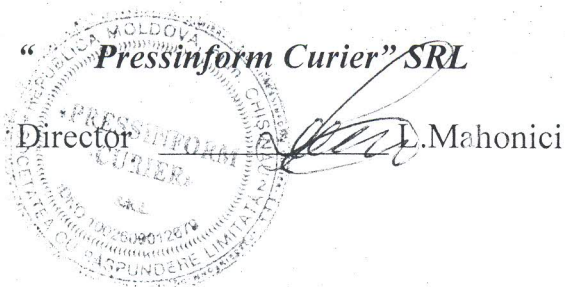 “ Pressinform Curier” SRL
Director L.Mahonici
REPUBLICA MOLDOVA
CHISINAU
SOCIETATEA CU RASPUNDERE LIMITATĂ
•PRESSINFORM
CURIER•
S.R.L.